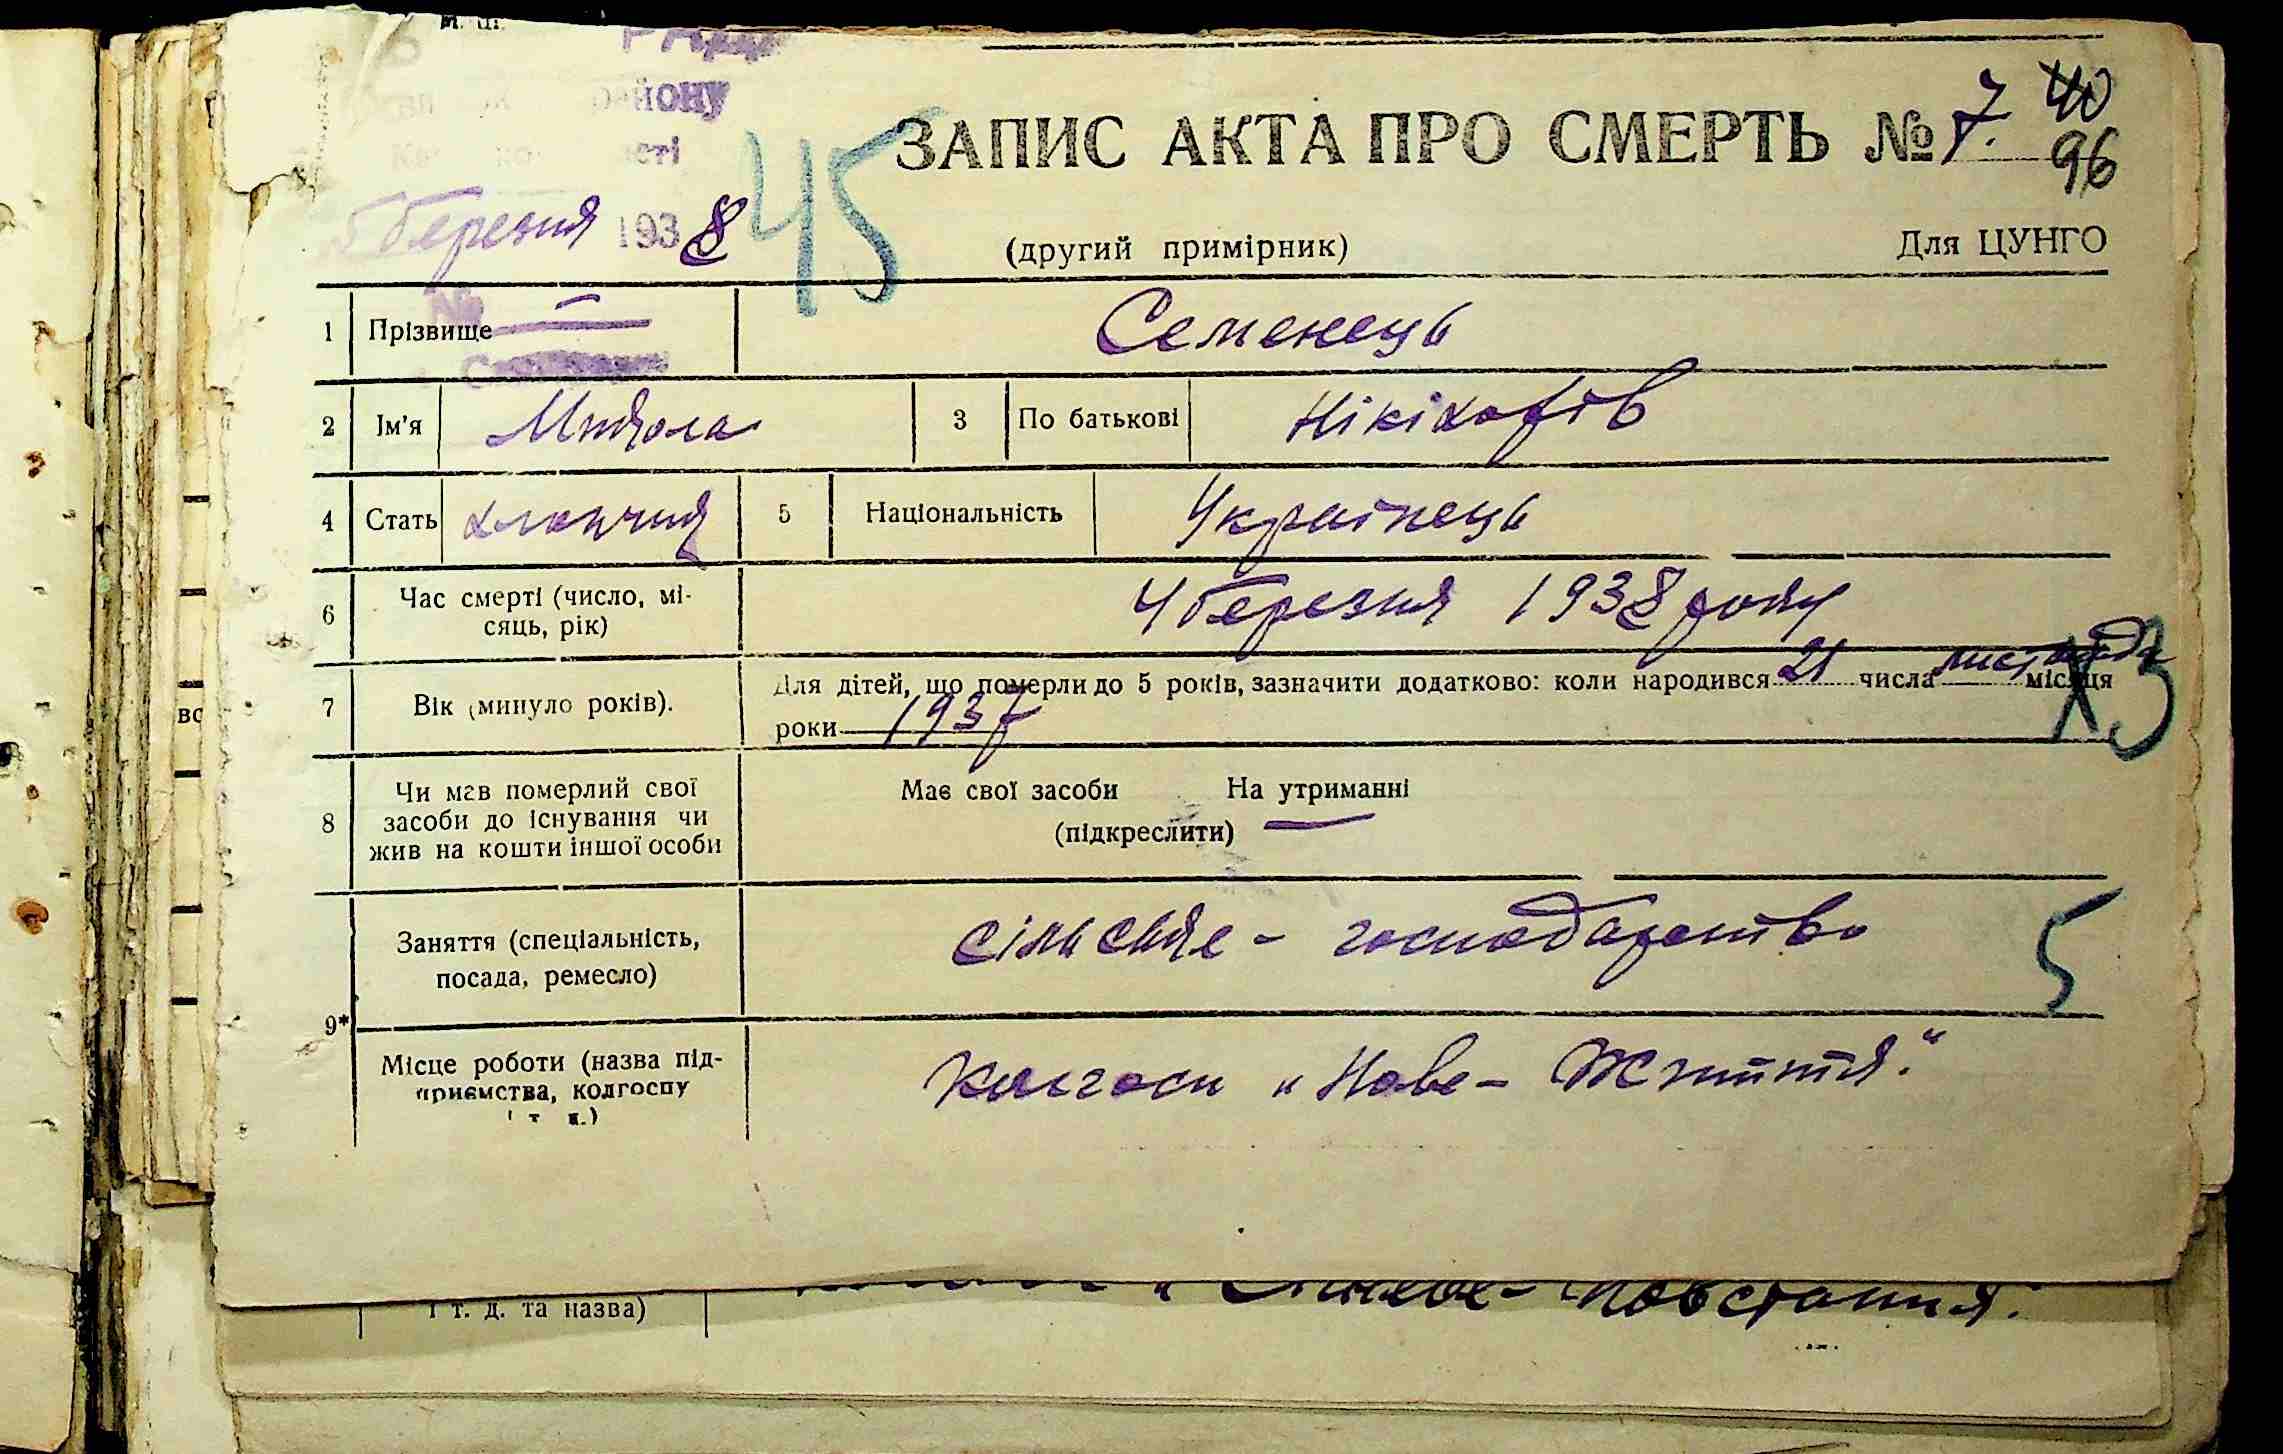 району
5 березня 1938
45
ЗАПИС АКТА ПРО СМЕРТЬ № 7.
40
96
(другий примірник)
Для ЦУНГО
№
1 Прізвище Семенець
2 Ім'я Микола 3 По батькові
4 Стать хлопчик 5 Національність Українець
6 Час смерті (число, мі-
сяць, рік)
4 березня 1938 року
7 Вік (минуло років).
Для дітей, що померли до 5 років, зазначити додатково: коли народився 21 числа листопада місяця
роки 1937
3
8 Чи мав померлий свої
засоби до існування чи
жив на кошти іншої особи
Має свої засоби На утриманні
(підкреслити)
9*
Заняття (спеціальність,
посада, ремесло)
сільське - господарство
5
Місце роботи (назва під-
приємства, колгоспу
і т. п.)
колгосп „Нове - Життя."
і т. д. та назва)
повстання."
во